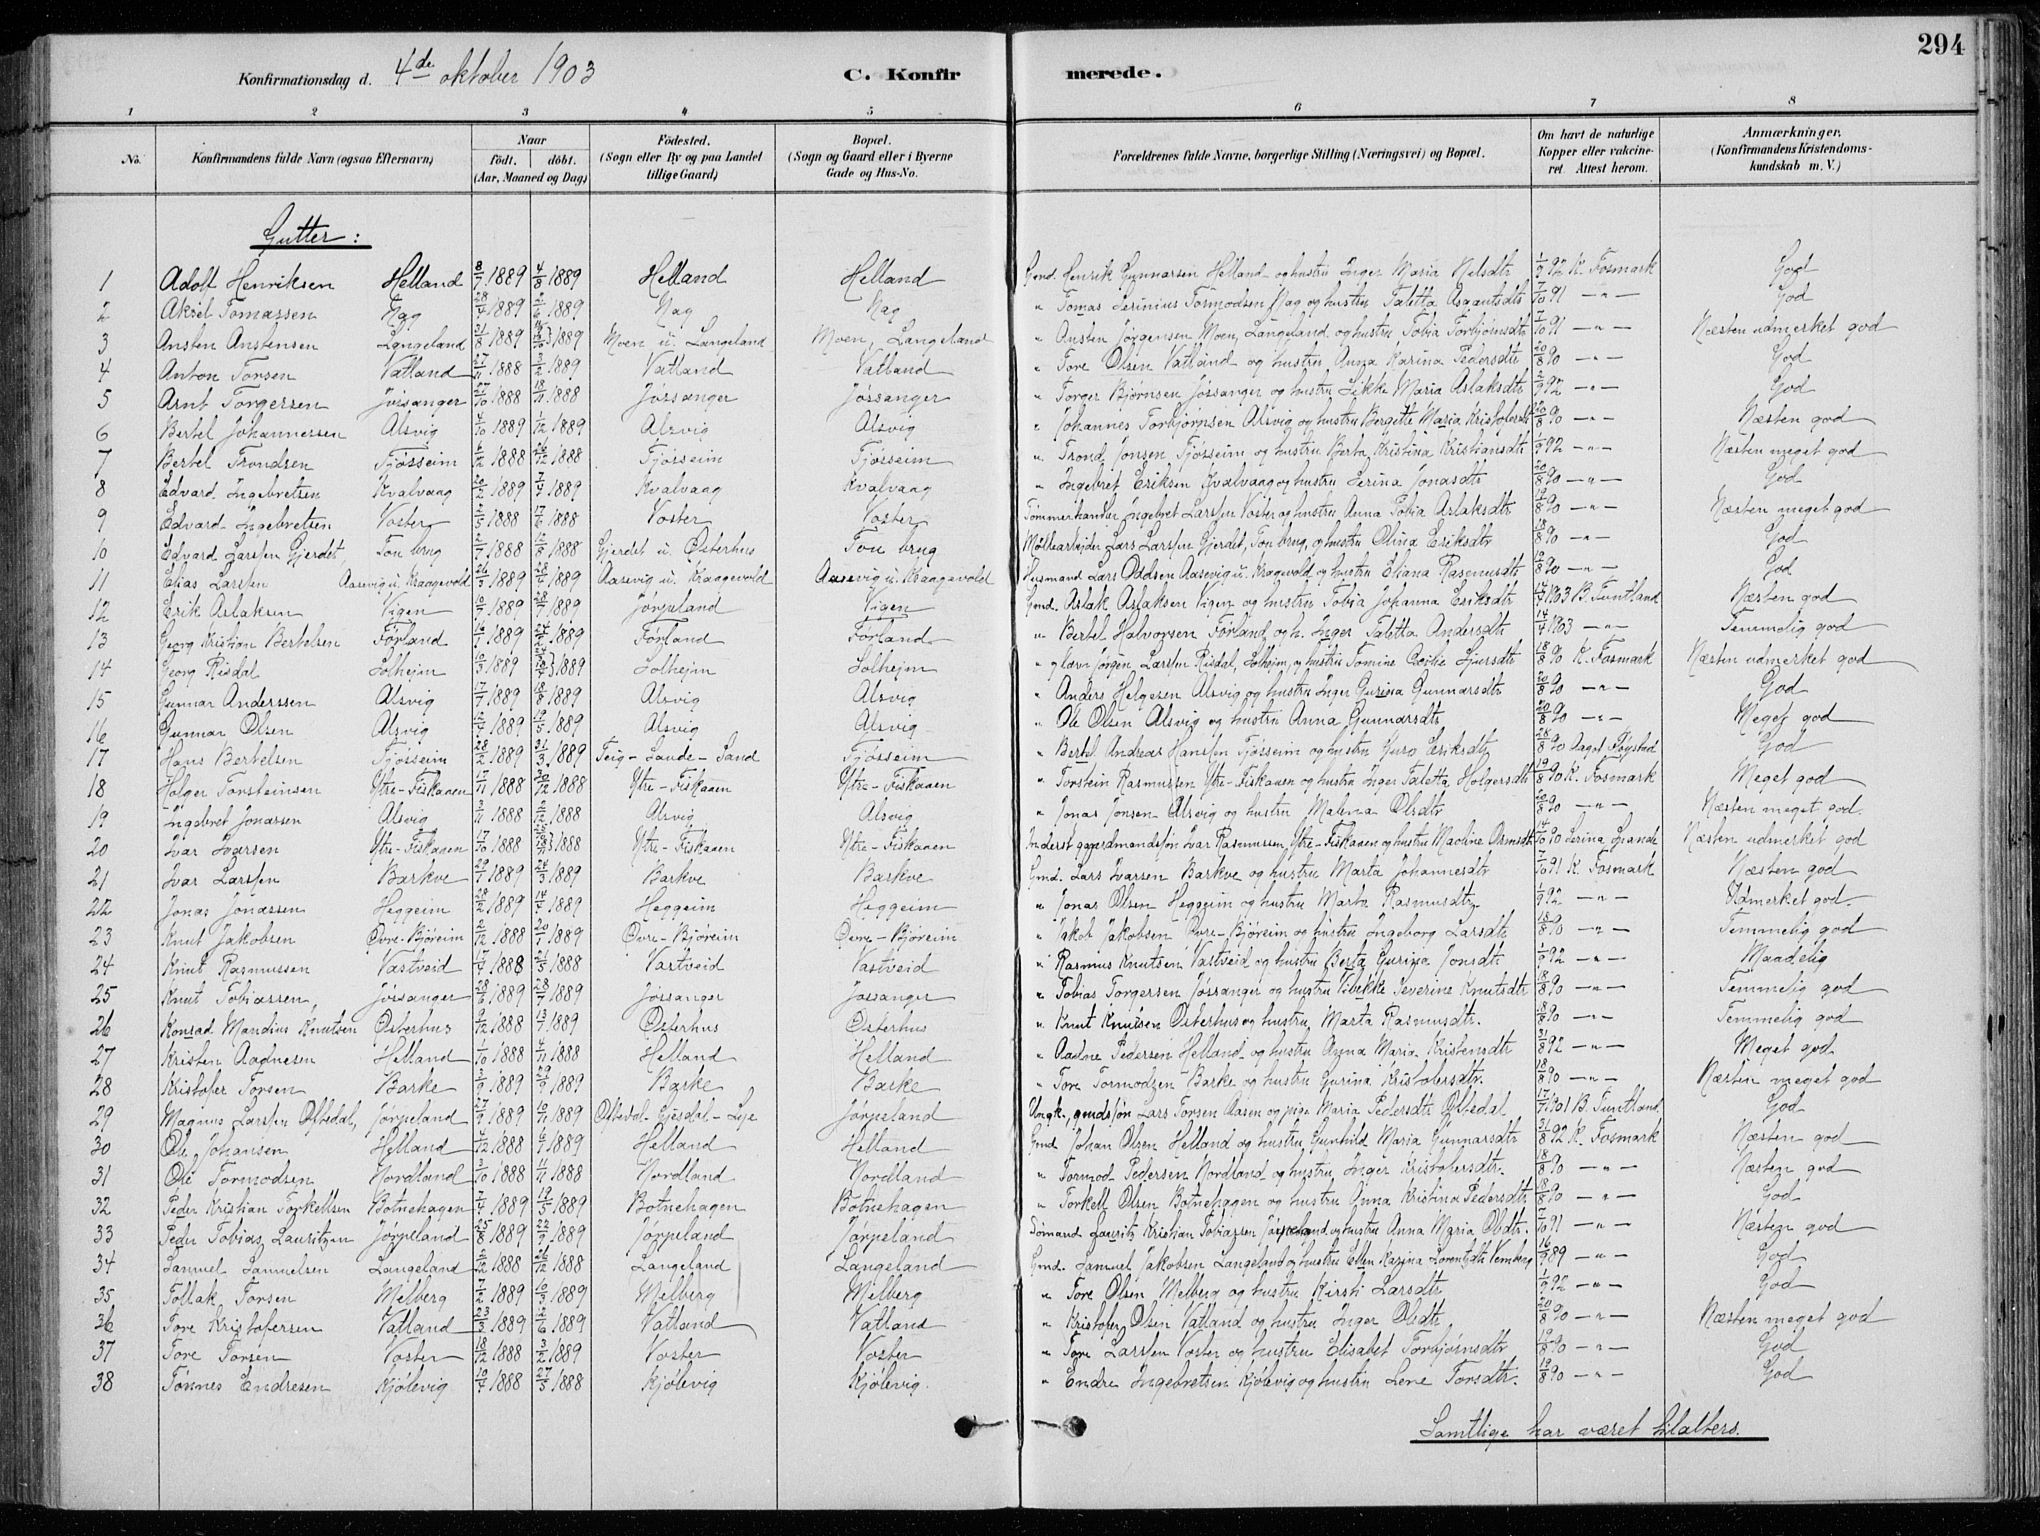 294
Konfirmationsdag d. 4de oktober 1903 C. Konfirmerede.
1 2 3 4 5 6 7 8
No. Konfirmandens fulde Navn (ogsaa Efternavn) Naar født. døbt. (Aar, Maaned og Dag) Fødested. (Sogn eller By og paa Landet tillige Gaard) Bopæl. (Sogn og Gaard eller i Byerne Gade og Hus-No. Forældrenes fulde Navne, borgerlige Stilling (Næringsvei) og Bopæl. Om havt de naturlige Kopper eller vakcineret. Attest herom. Anmærkninger. (Konfirmandens Kristendomskundskab m. V.)
Gutter:
1 Adolf Henriksen Helland 8/7 1889 4/8 1889 Helland Helland Gmd. Henrik Gunnarsen Helland og hustru Inger Maria Nelsdtr 1/9 92 K. Fosmark God
2 Aksel Tomassen Nag 28/4 1889 2/6 1889 Nag Nag " Tomas Serinius Tormodsen Nag og hustru Taletta Asgautsdtr 7/10 91 —"— God
3 Ansten Anstensen Langeland 31/8 1889 1889 Moen u. Langeland Moen, Langeland " Ansten Jørgensen Moen, Langeland og hustru Tobia Torbjørnsdtr 7/10 91 —"— Næsten udmerket god
4 Anton Torsen Vatland 27/11 1888 3/2 1889 Vatland Vatland " Tore Olsen Vatland og hustru Anna Karina Pedersdtr 20/8 90 —"— God
5 Arnt Torgersen Jøssanger 27/10 1888 18/11 1888 Jøssanger Jøssanger " Torger Bjørnsen Jøssanger og hustru Sikke Maria Aslaksdtr 2/9 92 —"— God
6 Bertel Johannessen Alsvig 4/10 1889 1/12 1889 Alsvig Alsvig " Johannes Torbjørnsen Alsvig og hustru Bergitte Maria Kristofersdtr 20/8 90 —"— Næsten god
7 Bertel Trondsen Tjøsseim 6/12 1888 26/12 1888 Tjøsseim Tjøsseim " Trond Jonsen Tjøsseim og hustru Berta Kristina Kristiansdtr 1/9 92 —"— Næsten meget god
8 Edvard Ingebretsen Kvalvaag 20/2 1889 7/4 1889 Kvalvaag Kvalvaag " Ingebret Eriksen Kvalvaag og hustru Serina Jonasdtr 20/8 90 —"— God
9 Edvard Ingebretsen Voster 2/5 1888 17/6 1888 Voster Voster Tømmerhandler Ingebret Larssen Voster og hustru Anna Tobia Aslaksdtr 19/8 90 —"— Næsten meget god
10 Edvard Larssen Gjerdet Tou brug 2/7 1888 12/8 1888 Gjerdet u. Østerhus Tou brug Møllearbeider Lars Larssen Gjerdet, Tou brug, og hustru Olina Eriksdtr 18/8 90 —"— God
11 Elias Larssen Aasevig u. Kraagevold 26/3 1889 28/4 1889 Aasevig u. Kraagevold Aasevig u. Kraagevold Husmand Lars Oddsen Aasevig u. Kraagevold og hustru Eliana Rasmusdtr 19/8 90 —"— God
12 Erik Aslaksen Vigen 10/7 1889 28/7 1889 Jørpeland Vigen Gmd. Aslak Aslaksen Vigen og hustru Tobia Johanna Eriksdtr 14/4 1903 B. Tuntland Næsten god
13 Georg Kristian Bertelsen Førland 16/1 1889 24/2 1889 Førland Førland " Bertel Halvorsen Førland og h. Inger Taletta Andersdtr 14/4 1903 —"— Temmelig god
14 Georg Risdal Solheim 1889 1889 Solheim Solheim " Jørgen Larssen Risdal, Solheim, og hustru Tomine 18/8 90 K. Fosmark Næsten udmerket god
15 Gunnar Anderssen Alsvig 17/7 1889 18/8 1889 Alsvig Alsvig " Anders Helgesen Alsvig og hustru Inger Gurina Gunnarsdtr 20/8 90 —"— God
16 Gunnar Olsen Alsvig 12/4 1889 19/5 1889 Alsvig Alsvig " Ole Olsen Alsvig og hustru Anna Gunnarsdtr 20/8 90 —"— Meget god
17 Hans Bertelsen Tjøsseim 28/2 1889 31/3 1889 Teig - Sande - Sand Tjøsseim " Bertel Andreas Hanssen Tjøsseim og hustru Guro Eriksdtr 28/8 90 Aaget Føystad God
18 Holger Torsteinsen Ytre-Fiskaaen 17/11 1888 30/12 1888 Ytre-Fiskaaen Ytre-Fiskaaen " Torstein Rasmussen Ytre-Fiskaaen og hustru Inger Taletta Holgersdtr 19/8 90 K. Fosmark Meget god
19 Ingebret Jonassen Alsvig 3/11 1888 2/12 1888 Alsvig Alsvig " Jonas Jonsen Alsvig og hustru Malena Olsdtr 20/8 90 —"— Næsten meget god
20 Ivar Ivarsen Ytre-Fiskaaen 17/10 1888 1888 Ytre-Fiskaaen Ytre-Fiskaaen Inderst gaardmandssøn Ivar Rasmussen, Ytre-Fiskaaen og hustru Maoline Ormsdtr 14/10 90 Serina Grande Næsten udmerket god
21 Ivar Larssen Barkve 29/1 1889 24/3 1889 Barkve Barkve Gmd. Lars Ivarsen Barkve og hustru Marta Johannesdtr 7/10 91 K. Fosmark Næsten god
22 Jonas Jonassen Heggeim 28/2 1889 14/4 1889 Heggeim Heggeim " Jonas Olsen Heggeim og hustru Marta Rasmusdtr 1/9 92 —"— Udmerket god
23 Knut Jakobsen Øvre-Bjøreim 2/12 1888 20/1 1889 Øvre-Bjøreim Øvre-Bjøreim " Jakob Jakobsen Øvre-Bjøreim og hustru Ingeborg Larsdtr 18/8 90 —"— Temmelig god
24 Knut Rasmussen Vastveid 17/4 1888 21/5 1888 Vastveid Vastveid " Rasmus Knutsen Vastveid og hustru Berta Gurina Jonsdtr 1/9 92 —"— Maadelig
25 Knut Tobiassen Jøssanger 28/6 1889 28/7 1889 Jøssanger Jøssanger " Tobias Torgersen Jøssanger og hustru Vibikke Severine Knutsdtr 18/8 90 —"— Temmelig god
26 Konrad Mandius Knutsen Østerhus 9/12 1888 13/1 1889 Østerhus Østerhus " Knut Knutsen Østerhus og hustru Marta Rasmusdtr. 18/8 90 —"— Temmelig god
27 Kristen Aadnesen Helland 1/10 1888 4/11 1888 Helland Helland " Aadne Pedersen Helland og hustru Anna Maria Kristensdtr 31/8 92 —"— Meget god
28 Kristofer Torsen Barke 3/9 1889 29/9 1889 Barke Barke " Tore Tormodsen Barke og hustru Gurina Kristofersdtr. 18/8 90 —"— Næsten meget god
29 Magnus Larssen Oftedal, Jørpeland 27/9 1889 10/11 1889 Oftedal - Gjesdal - Lye Jørpeland Ungk., gmdssøn Lars Torsen Aasen og pige Maria Pedersdtr Oftedal 17/7 1901 B. Tuntland God
30 Ole Johansen Helland 4/12 1888 6/1 1889 Helland Helland Gmd Johan Olsen Helland og hustru Gunhild Maria Gunnarsdtr 31/8 92 K. Fosmark Næsten god
31 Ole Tormodsen Nordland 3/10 1888 11/11 1888 Nordland Nordland " Tormod Pedersen Nordland og hustru Inger Kristofersdtr. 18/8 90 —"— Næsten god
32 Peder Kristian Torkellsen Botnehagen 7/4 1889 19/5 1889 Botnehagen Botnehagen " Torkell Olsen Botnehagen og hustru Anna Kristina Pedersdtr 18/8 90 —"— God
33 Peder Tobias Lauritzen Jørpeland 25/8 1889 22/9 1889 Jørpeland Jørpeland Sømand Lauritz Kristian Tobiassen Jørpeland og hustru Anna Maria Olsdtr. 7/10 91 —"— Næsten god
34 Samuel Samuelsen Langeland 2/12 1888 26/12 1888 Langeland Langeland Gmd. Samuel Jakobsen Langeland og hustru Ellen Karina Lorentsdtr 16/9 89 —"— God
35 Tollak Torsen Melberg 7/2 1889 10/3 1889 Melberg Melberg " Tore Olsen Melberg og hustru Kirsti Larsdtr 1/9 92 —"— God
36 Tore Kristofersen Vatland 23/3 1889 2/6 1889 Vatland Vatland " Kristofer Olsen Vatland og hustru Inger Olsdtr 20/8 90 —"— Næsten meget god
37 Tore Torsen Voster 18/12 1888 3/2 1889 Voster Voster " Tore Larssen Voster og hustru Elisabet Torbjørnsdtr 19/8 90 —"— God
38 Tønnes Endresen Kjølevig 10/4 1888 27/5 1888 Kjølevig Kjølevig " Endre Ingebretsen Kjølevig og hustru Lene Torsdtr. 19/8 90 —"— God
Samtlige har været tilalters.